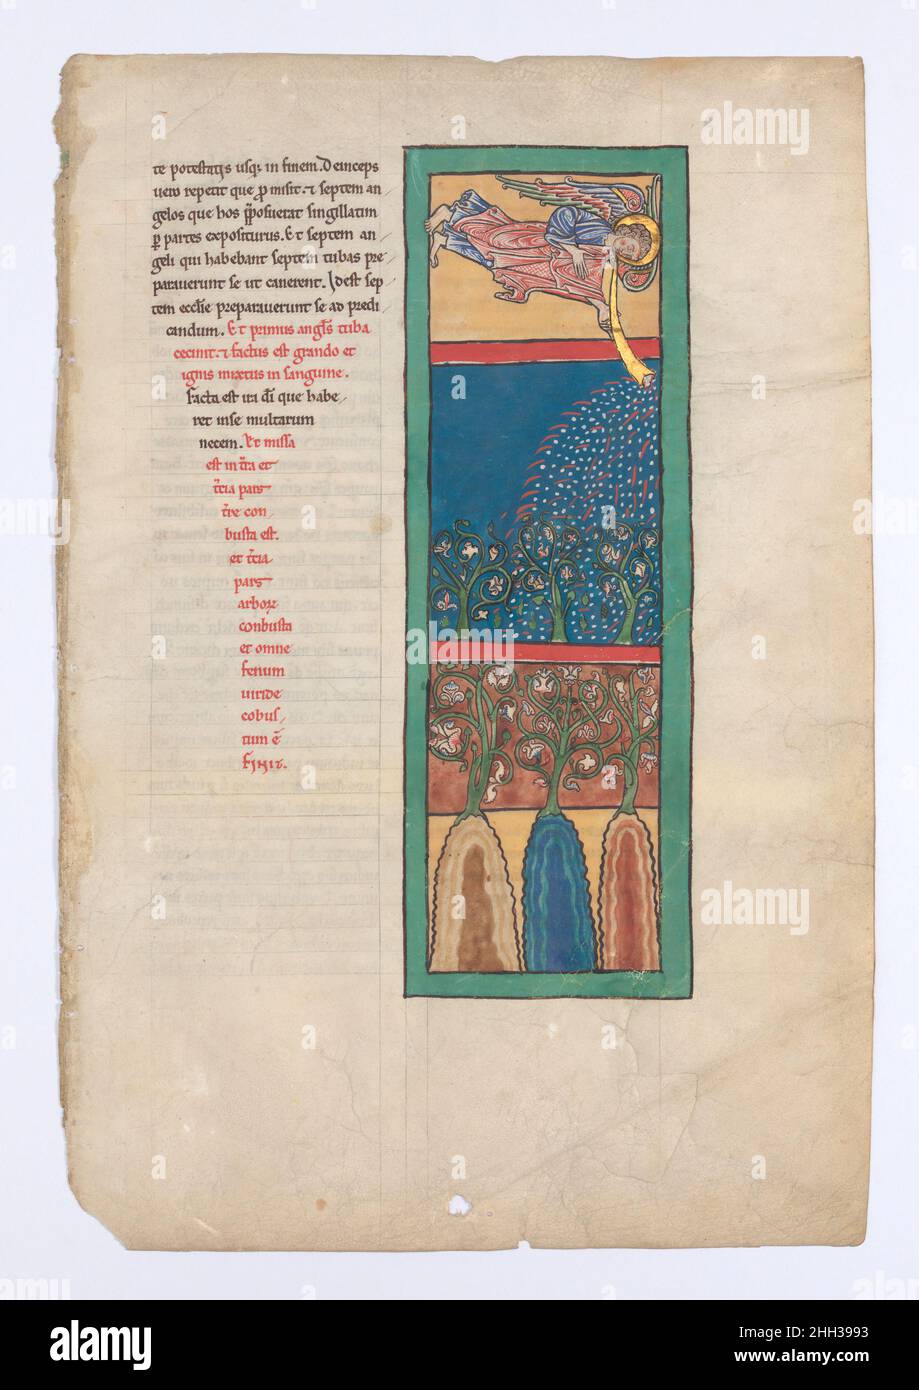 te potestatis usq; in finem. Deinceps
uero repetit que p̄misit. ⁊ septem an
gelos que hos p̄posuerat singillatim
ꝑ partes expositurus. Et septem an
geli qui habebant septem tubas pre
parauerunt se ut canerent. Idest sep
tem ecclīe preparauerunt se ad predi
candum. Et primus angl̄s tuba
cecinit. ⁊ factus est grando et
ignis mixtus in sanguine.
facta est ira dī que habe
ret inse multarum
necem. Et missa
est in t̄ra et
t̄cia pars
t̄re con
busta est.
et t̄cia
pars
arboꝝ
conbusta
et omne
fenum
uiride
cobus
tum ē
FINIT.
alamy
Image ID: 2HH3993
www.alamy.com